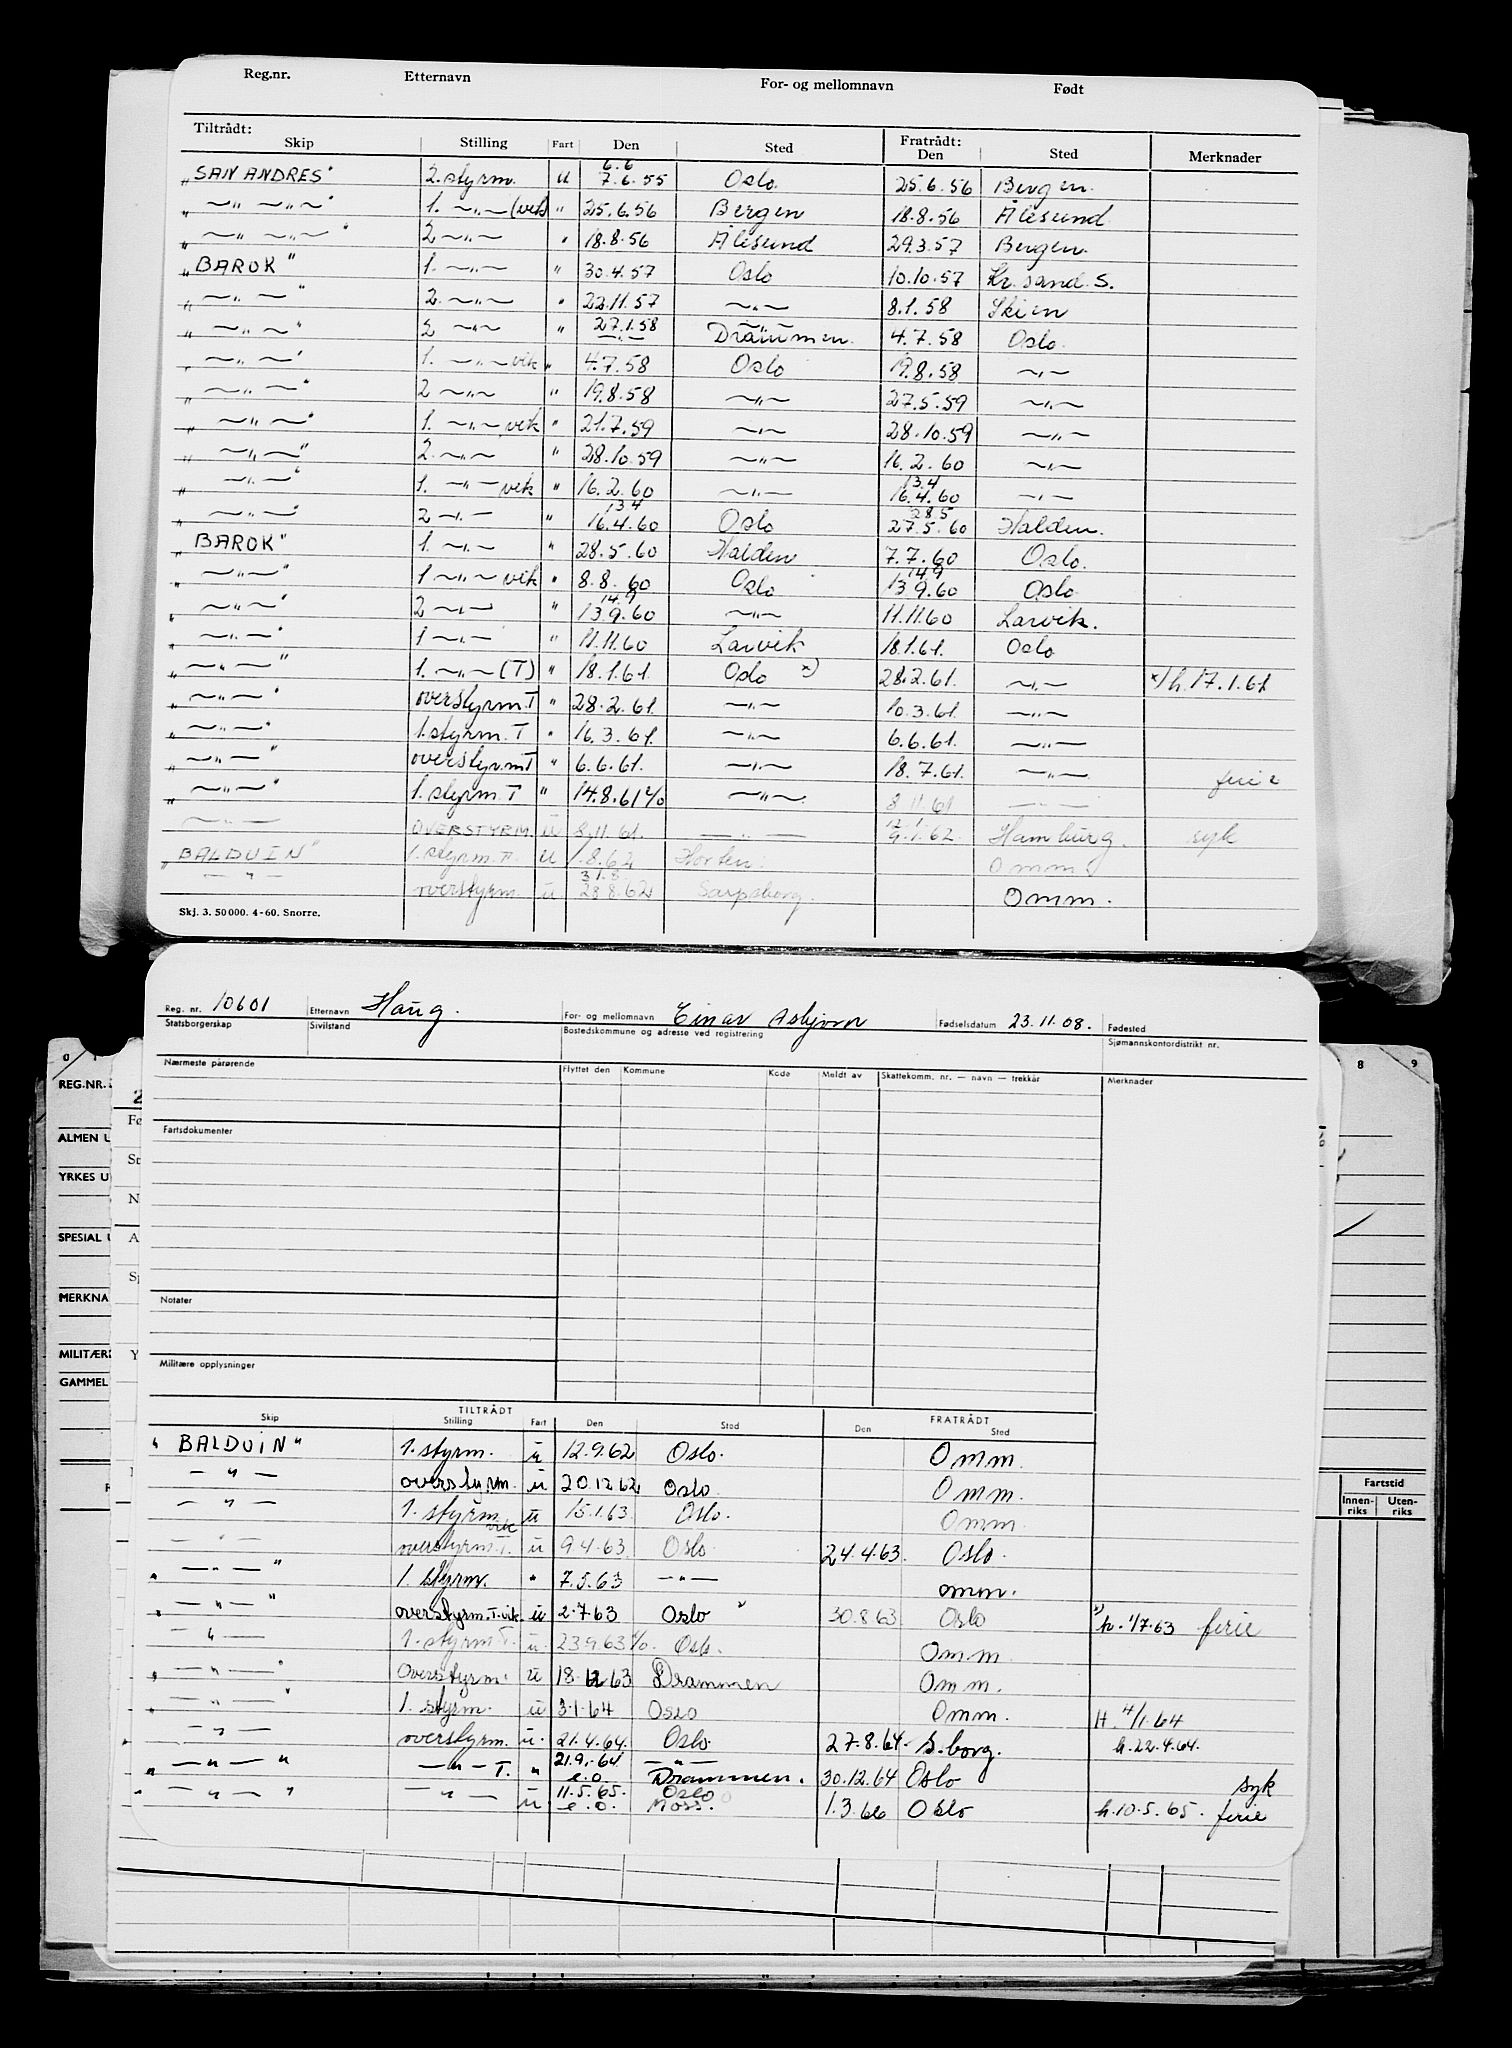 Reg.nr. Etternavn For- og mellomnavn Født
Tiltrådt: Fratrådt:
Skip Stilling Fart Den Sted Den Sted Merknader
6.6
„SAN ANDRES" 2. styrm. u 7.6.55 Oslo. 25.6.56 Bergen.
„ —„— —„—" 1. —„— (vik) " 25.6.56 Bergen 18.8.56 Ålesund
„ —„— —„—" 2 —„— " 18.8.56 Ålesund 29.3.57 Bergen.
„BAROK" 1. —„— " 30.4.57 Oslo 10.10.57 Kr.sand.S.
„ —„—" 2. —„— " 22.11.57 —„— 8.1.58 Skien
„ —„—" 2 —„— " 27.1.58 Drammen. 4.7.58 Oslo.
„ —„—" 1. —„— vik " 4.7.58 Oslo 19.8.58 —„—
„ —„—" 2 —„— " 19.8.58 —„— 27.5.59 —„—
„ —„—" 1. —„— vik " 21.7.59 —„— 28.10.59 —„—
„ —„—" 2. —„— " 28.10.59 —„— 16.2.60 —„—
13.4
„ —„—" 1. —„— vik " 16.2.60 —„— 16.4.60 —„—
13.4 28.5
„ —„—" 2 —„— " 16.4.60 Oslo 27.5.60 Halden.
„BAROK" 1. —„— " 28.5.60 Halden 7.7.60 Oslo.
14.9
„ —„—" 1 —„— vik " 8.8.60 Oslo 13.9.60 Oslo
14.9
„ —„—" 2 —„— " 13.9.60 —„— 11.11.60 Larvik.
„ —„—" 1 —„— " 11.11.60 Larvik 18.1.61. Oslo
„ —„—" 1. —„— (T) " 18.1.61. Oslo x) 28.2.61. —„— x) h. 17.1.61
„ —„—" overstyrm.T " 28.2.61. —„— 10.3.61. —„—
„ —„—" 1.styrm.T " 16.3.61. —„— 6.6.61. —„—
„ —„—" overstyrm.T " 6.6.61. —„— 18.7.61. —„— ferie
„ —„—" 1.styrm.T " 14.8.61 —„—. 8.11.61 —„—
—„— OVERSTYRM. u 8.11.61. —„— 1.62. Hamburg. syk
„BALDUIN" 1.styrm.T. u 1.8.62 Horten. Omm.
31.8
—„— overstyrm. u 28.8.62 Sarpsborg. Omm.
Skj. 3. 50000. 4-60. Snorre.
Reg. nr. 10601 Etternavn Haug. For- og mellomnavn Einar Asbjørn Fødselsdatum 23.11.08. Fødested
Statsborgerskap Sivilstand Bostedskommune og adresse ved registrering Sjømannskontordistrikt nr.
Nærmeste pårørende Flyttet den Kommune Kode Meldt av Skattekomm. nr. — navn — trekkår Merknader
Fartsdokumenter
Notater
Militære opplysninger
TILTRÅDT FRATRÅDT
Skip Stilling Fart Den Sted Den Sted
„BALDUIN" 1. styrm. u 12.9.62 Oslo. Omm.
—„— overstyrm. u 20.12.62 Oslo Omm.
—„— 1. styrm. u 15.1.63. Oslo. Omm.
vik
—„— overstyrm.T. u 9.4.63 Oslo 24.4.63. Oslo.
„ —„—" 1. styrm. " 7.5.63 —„— omm.
„ —„—" overstyrm.T.vik. u 2.7.63 Oslo x) 30.8.63 Oslo x) h. 1/7.63 ferie
—„— 1. styrm.T. u. 23.9.63 Oslo. Omm.
„ —„—" Overstyrm. u 18.12.63 Drammen Omm.
„ —„—" 1. styrm. u 3.1.64 Oslo Omm. H. 4/1.64
—„— overstyrm. u. 21.4.64. Oslo. 27.8.64. S.borg. h.22.4.64.
„ —„—" —„— T. " 21.9.64 —„—
e.o. Drammen. 30.12.64 Oslo syk
„ —„—" —„— u 11.5.65. Oslo
e.o. Moss. 1.3.66 Oslo h.10.5.65. ferie
REG.NR.
ALMEN U
YRKES U
SPESIAL U
MERKNA
MILITÆR
GAMMEL
8 9
Fartstid
Innen-riks Uten-riks